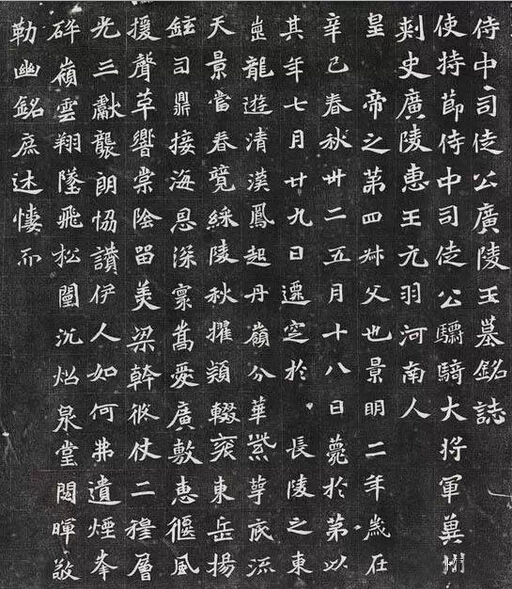 侍中司徒公廣陵王墓銘誌
使持節侍中司徒公驃騎大將軍冀州
刺史廣陵惠王元羽河南人
皇帝之第四叔父也景明二年歲在
辛巳春秋卅二五月十八日薨於第以
其年七月廿九日遷窆於長陵之東
崗龍遊清漢鳳起丹嶺分華紫萼底流
天景當春競綵陵秋擢穎輟袞東岳揚
鉉司鼎接海恩深稟嵩愛廣敷惠偃風
援聲草響棠陰留美梁幹條仗二穆層
光三獻襲朗協讚伊人如何弗遺煙峯
碎嶺雲翔墜飛松闈沉炤泉堂閟暉敬
勒幽銘庶述悽而